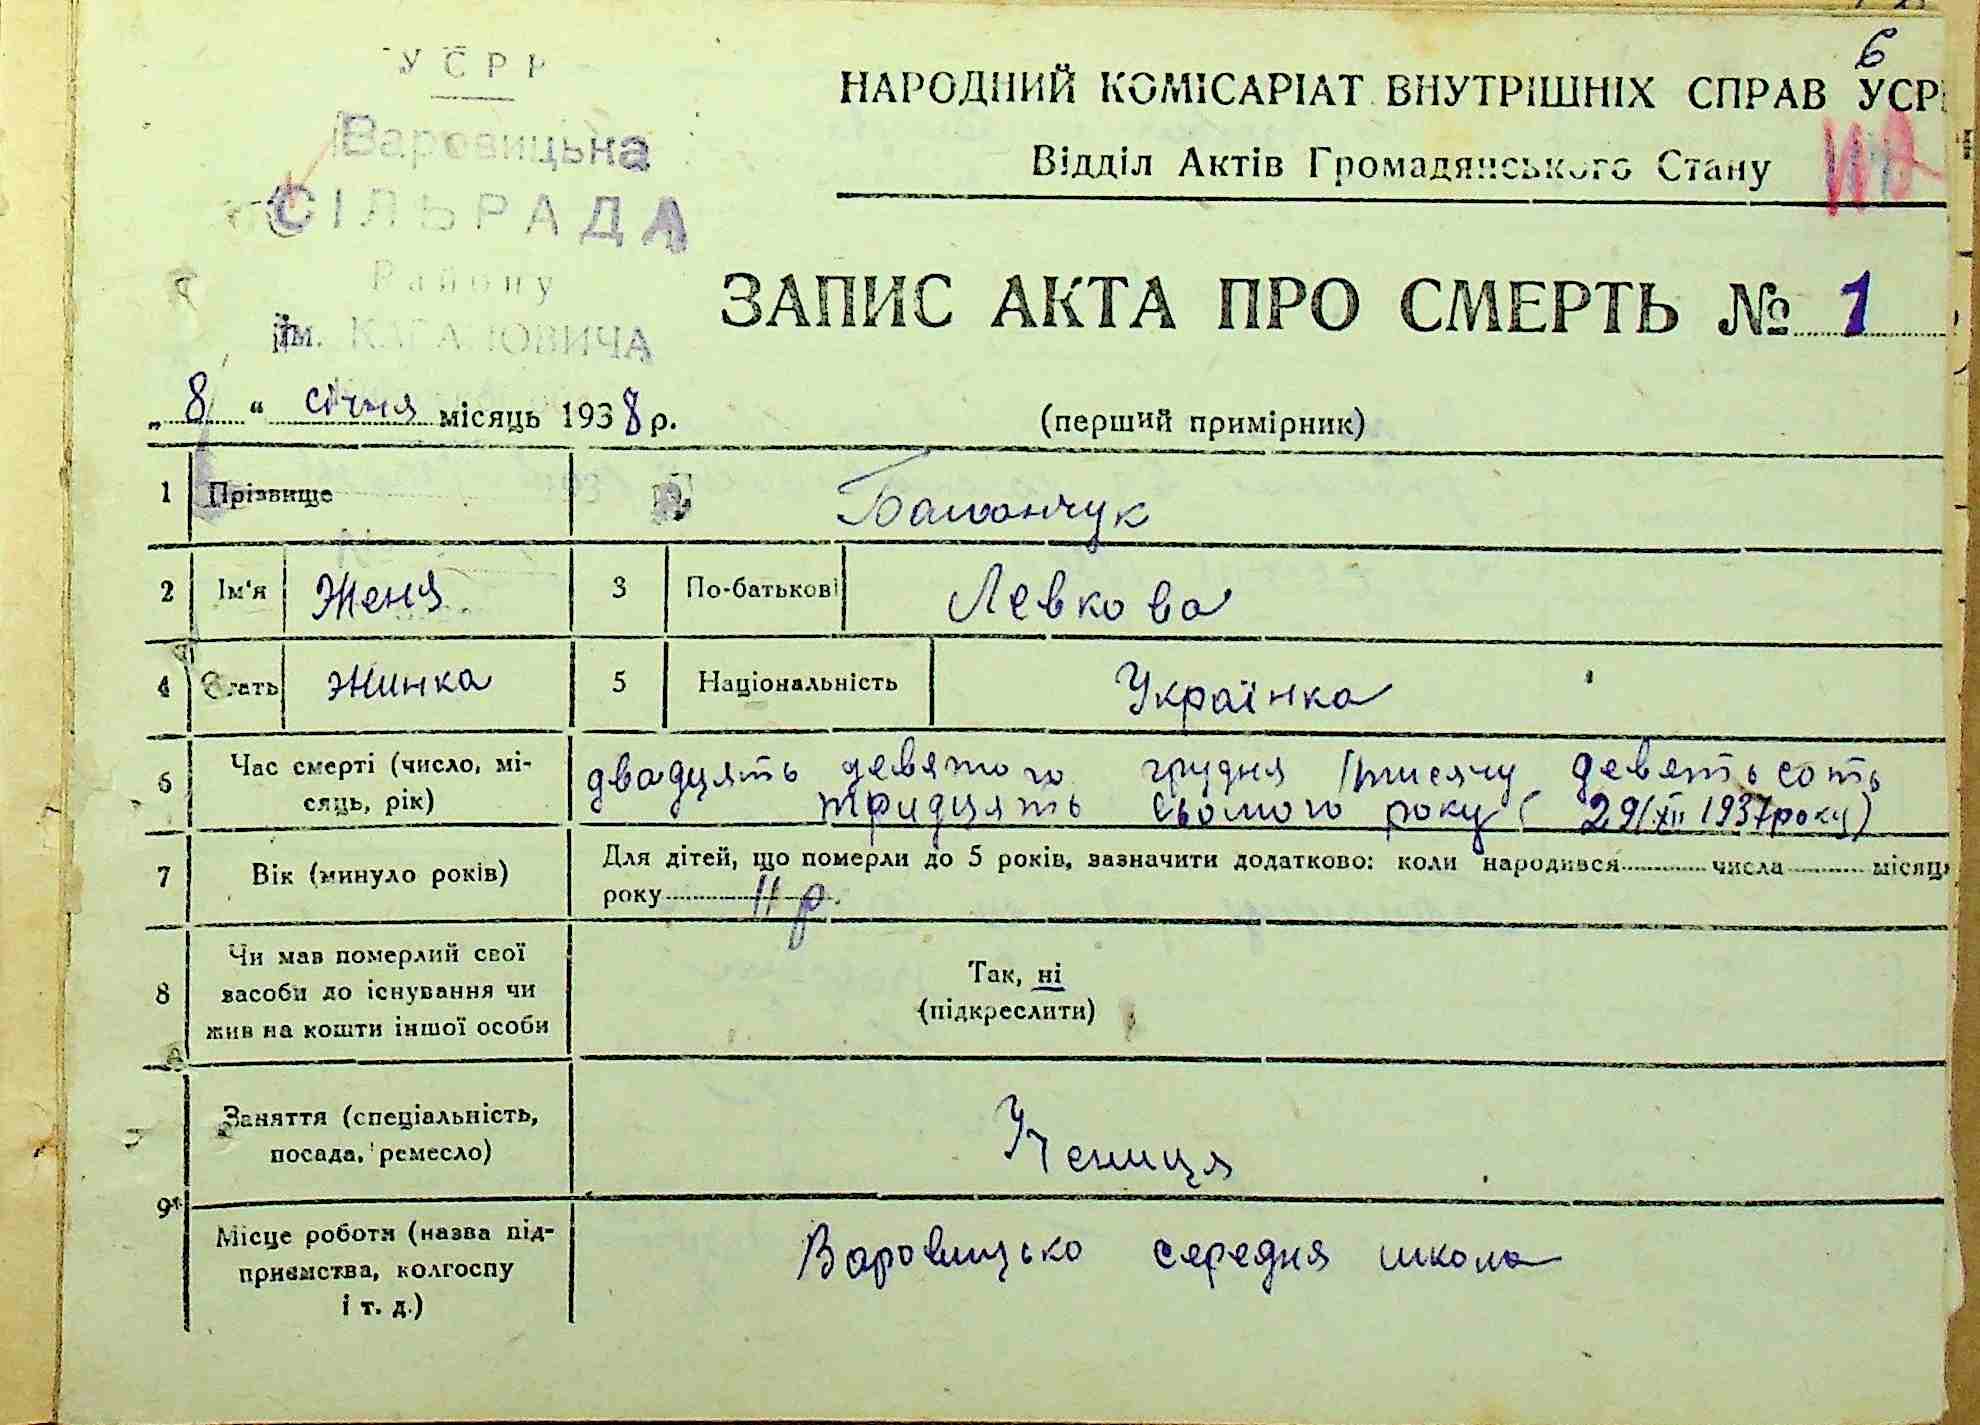 6
УСРР
Варовицьна
СІЛЬРАДА
Району
ім. КАГАНОВИЧА
НАРОДНИЙ КОМІСАРІАТ ВНУТРІШНІХ СПРАВ УСР
Відділ Актів Громадянського Стану
ЗАПИС АКТА ПРО СМЕРТЬ № 1
„8“ січня місяць 1938 р.
(перший примірник)
1 Прізвище
2 Ім'я Женя 3 По-батькові Левкова
4 Стать жинка 5 Національність Українка
6 Час смерті (число, мі-
сяць, рік)
двадцять девятого грудня тисячу девятьсоть
тридцять сьомого року (29/XII 1937 року)
7 Вік (минуло років)
Для дітей, що померли до 5 років, зазначити додатково: коли народився числа місяц
року 11 р.
8 Чи мав померлий свої
засоби до існування чи
жив на кошти іншої особи
Так, ні
(підкреслити)
9 Заняття (спеціальність,
посада, ремесло)
Учениця
Місце роботи (назва під-
приємства, колгоспу
і т. д.)
Варовицько середня школа